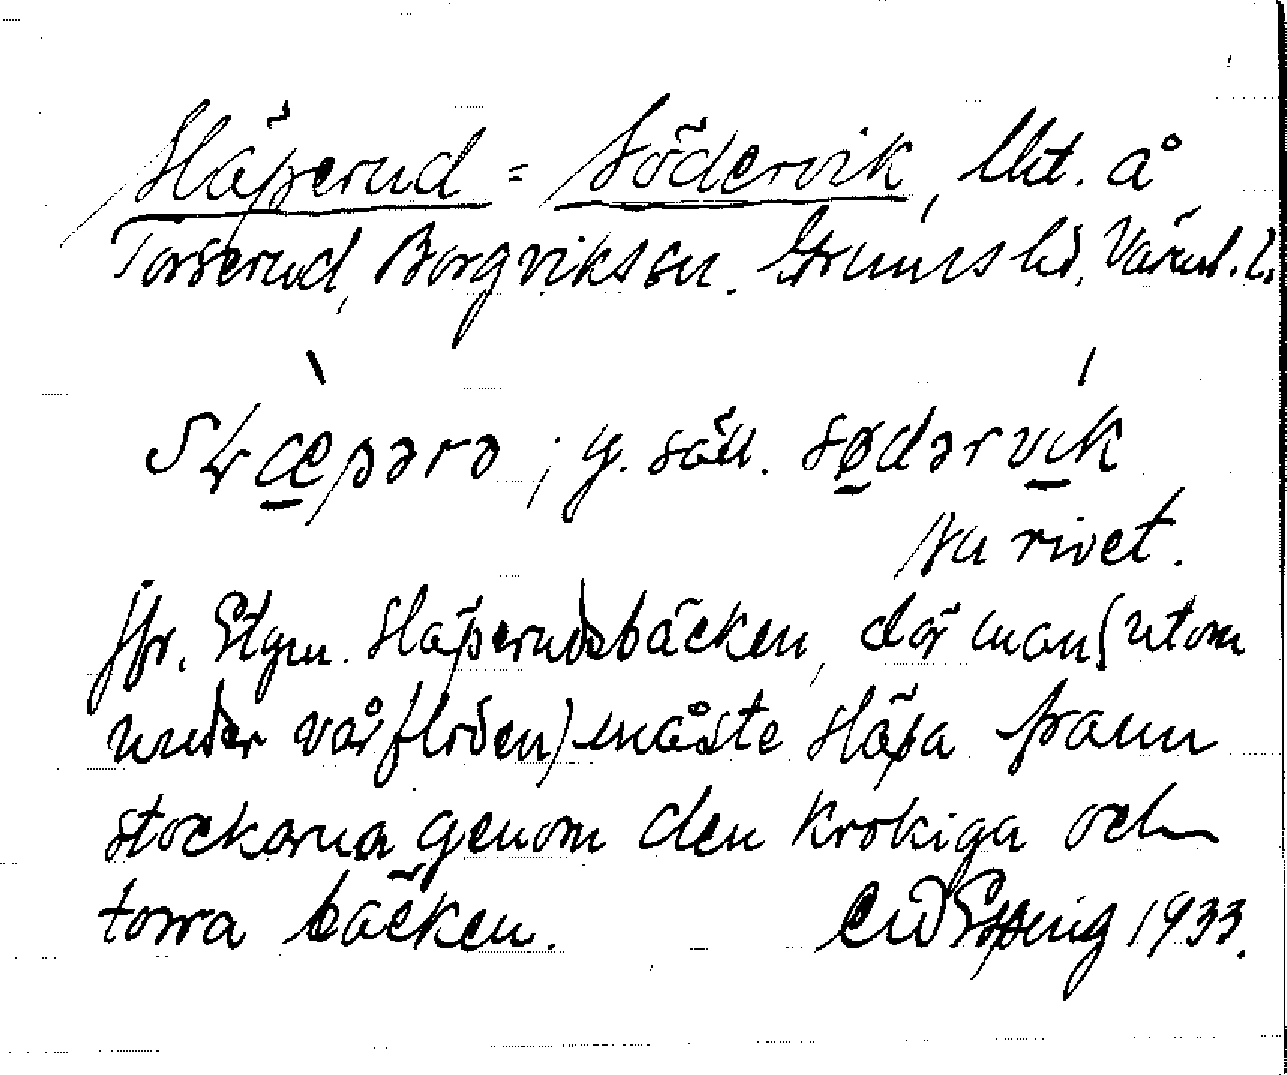 Släperud = Södervik, lht. å
Torserud, Borgviks sn. Grums hd, Värml. l.
Slæpərə ; y. säll. sødərvik
Nu rivet.
Jfr. Stgn. Släperudsbäcken, där man (utom
under vårfloden) måste släpa fram
stockarna genom den krokiga och
torra bäcken. 1933.